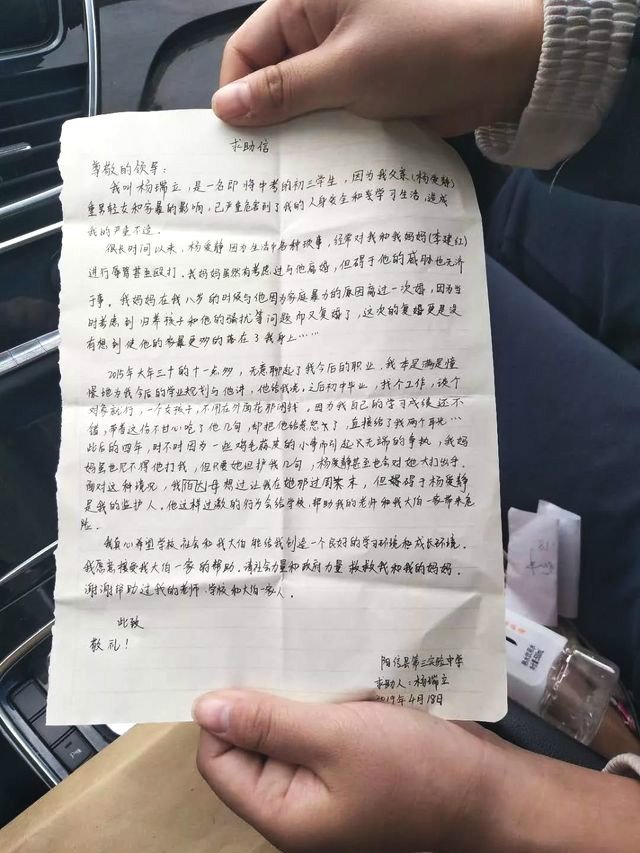 求助信
尊敬的领导：
我叫杨瑞立，是一名即将中考的初三学生，因为我父亲（杨爱静）
重男轻女和家暴的影响，已严重危害到了我的人身安全和学习生活，造成
我的严重不适。
很长时间以来，杨爱静因为生活中各种琐事，经常对我和我妈妈（李建红）
进行辱骂甚至殴打。我妈妈虽然有考虑过与他离婚，但碍于他的威胁也无济
于事。我妈妈在我八岁的时候与他因为家庭暴力的原因离过一次婚，因为当
时考虑到归养孩子和他的骚扰等问题而又复婚了，这次的复婚更是没
有想到使他的家暴更多的落在了我身上……
2015年大年三十的十一点多，无意聊起了我今后的职业，我本是满是憧
憬地为我今后的学业规划与他讲，他给我说：之后初中毕业，找个工作，谈个
对象就行，一个女孩子，不用在外面花那闲钱。因为我自己的学习成绩还不
错，带着这份不甘心吃了他几句，却把他给惹怒了，直接给了我两个耳光…
此后的四年，时不时因为一些鸡毛蒜皮的小事而引起又无端的争执，我妈
妈虽也见不得他打我，但只要她但护我几句，杨爱静甚至也会对她大打出手。
面对这种境况，我伯伯母想过让我在她那过周末，但碍于杨爱静
是我的监护人。他这样过激的行为会给学校、帮助我的老师和我大伯一家带来危
险。
我真心希望学校、社会和我大伯能给我创造一个良好的学习环境和成长环境。
我愿意接受我大伯一家的帮助。请社会力量和政府力量救救我和我的妈妈。
谢谢帮助过我的老师、学校和大伯一家人。
此致
敬礼！
阳信县第三实验中学
求助人：杨瑞立
2019年4月18日